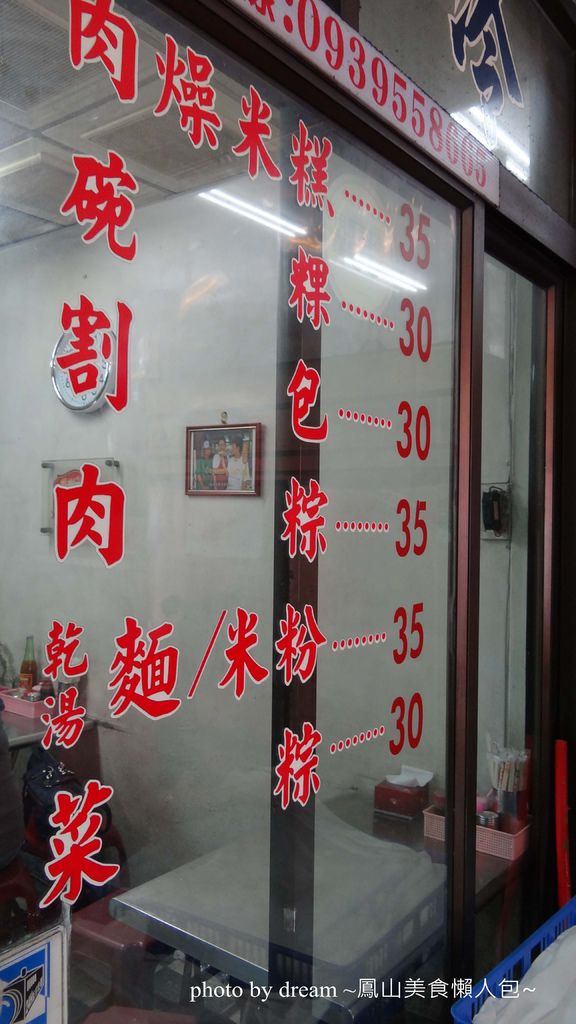 0939558665
肉燥米糕........35
碗粿........30
割包........30
肉粽........35
乾湯麵/米粉........35
菜粽........30
photo by dream ~鳳山美食懶人包~